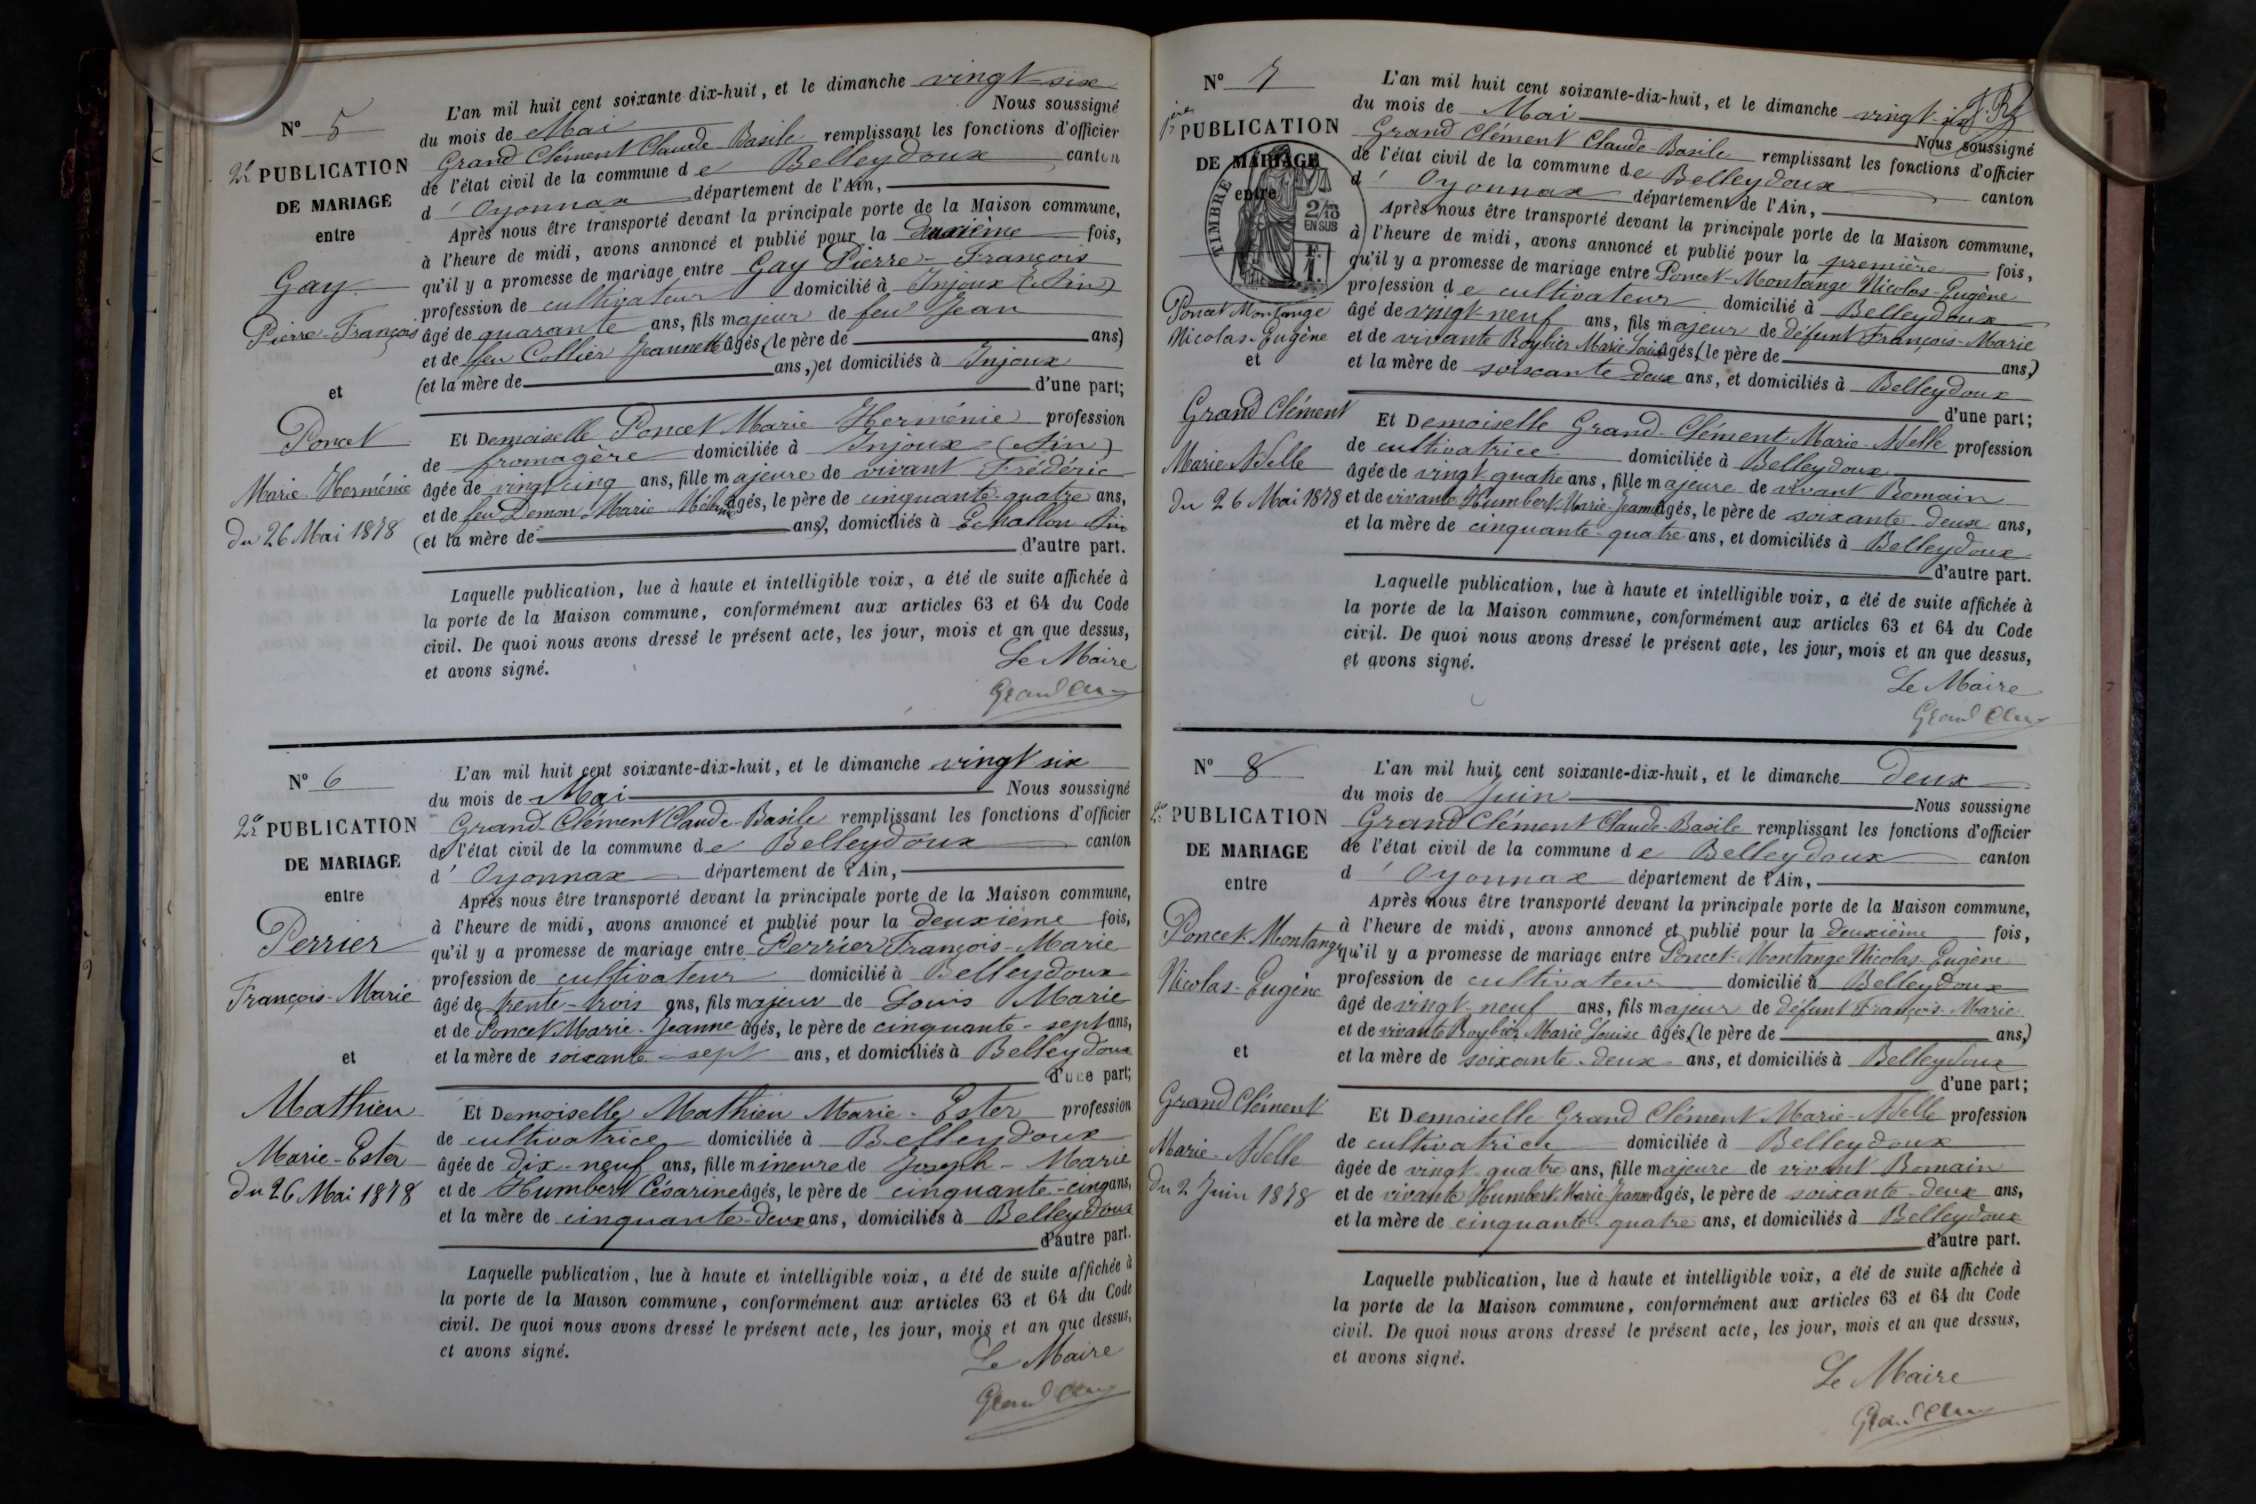 N° 5
2e PUBLICATION
DE MARIAGE
entre
Gay
Pierre-François
et
Poncet
Marie Herménie
Du 26 Mai 1878
L'an mil huit cent soixante-dix-huit, et le dimanche vingt-six
du mois de Mai Nous soussigné
Grand Clément Claude-Basile remplissant les fonctions d'officier
de l'état civil de la commune de Belleydoux canton
d' Oyonnax département de l'Ain,
Après nous être transporté devant la principale porte de la Maison commune,
à l'heure de midi, avons annoncé et publié pour la deuxième fois,
qu'il y a promesse de mariage entre Gay Pierre-François
profession de cultivateur domicilié à Injoux (Ain)
âgé de quarante ans, fils majeur de feu Jean
et de feu Collier Jeannette âgés, (le père de ans)
(et la mère de ans,) et domiciliés à Injoux
d'une part;
Et Demoiselle Poncet Marie Herménie profession
de fromagère domiciliée à Injoux (Ain)
âgée de vingt cinq ans, fille majeure de vivant Frédéric
et de feu Demon Marie âgés, le père de cinquante-quatre ans,
(et la mère de ans), domiciliés à Echallon Ain
d'autre part.
Laquelle publication, lue à haute et intelligible voix, a été de suite affichée à
la porte de la Maison commune, conformément aux articles 63 et 64 du Code
civil. De quoi nous avons dressé le présent acte, les jour, mois et an que dessus,
et avons signé.
Le Maire
Grand Clem
N° 6
2e PUBLICATION
DE MARIAGE
entre
Perrier
François-Marie
et
Mathieu
Marie-Ester
Du 26 Mai 1878
L'an mil huit cent soixante-dix-huit, et le dimanche vingt six
du mois de Mai Nous soussigné
Grand-Clément Claude-Basile remplissant les fonctions d'officier
de l'état civil de la commune de Belleydoux canton
d' Oyonnax département de l'Ain,
Après nous être transporté devant la principale porte de la Maison commune,
à l'heure de midi, avons annoncé et publié pour la deuxième fois,
qu'il y a promesse de mariage entre Perrier François-Marie
profession de cultivateur domicilié à Belleydoux
âgé de trente-trois ans, fils majeur de Louis Marie
et de Poncet Marie-Jeanne âgés, le père de cinquante-sept ans,
et la mère de soixante-sept ans, et domiciliés à Belleydoux
d'une part;
Et Demoiselle Mathieu Marie-Ester profession
de cultivatrice domiciliée à Belleydoux
âgée de dix-neuf ans, fille mineure de Joseph-Marie
et de Humbert Césarine âgés, le père de cinquante-cinq ans,
et la mère de cinquante-deux ans, domiciliés à Belleydoux
d'autre part.
Laquelle publication, lue à haute et intelligible voix, a été de suite affichée à
la porte de la Maison commune, conformément aux articles 63 et 64 du Code
civil. De quoi nous avons dressé le présent acte, les jour, mois et an que dessus,
et avons signé.
Le Maire
Grand Clem
N° 7
1ère PUBLICATION
DE MARIAGE
entre
TIMBRE
2/10
EN SUS
1F
Poncet Montange
Nicolas-Eugène
et
Grand Clément
Marie Adelle
Du 26 Mai 1878
L'an mil huit cent soixante-dix-huit, et le dimanche vingt-six
du mois de Mai Nous soussigné
Grand Clément Claude-Basile remplissant les fonctions d'officier
de l'état civil de la commune de Belleydoux canton
d' Oyonnax département de l'Ain,
Après nous être transporté devant la principale porte de la Maison commune,
à l'heure de midi, avons annoncé et publié pour la première fois,
qu'il y a promesse de mariage entre Poncet-Montange Nicolas-Eugène
profession de cultivateur domicilié à Belleydoux
âgé de vingt-neuf ans, fils majeur de défunt François-Marie
et de vivante Roybier Marie Louise âgés, (le père de ans,)
et la mère de soixante deux ans, et domiciliés à Belleydoux
d'une part;
Et Demoiselle Grand-Clément Marie-Adelle profession
de cultivatrice domiciliée à Belleydoux
âgée de vingt quatre ans, fille majeure de vivant Romain
et de vivante Humbert Marie-Jeanne âgés, le père de soixante-deux ans,
et la mère de cinquante-quatre ans, et domiciliés à Belleydoux
d'autre part.
Laquelle publication, lue à haute et intelligible voix, a été de suite affichée à
la porte de la Maison commune, conformément aux articles 63 et 64 du Code
civil. De quoi nous avons dressé le présent acte, les jour, mois et an que dessus,
et avons signé.
Le Maire
Grand Clem
N° 8
2e PUBLICATION
DE MARIAGE
entre
Poncet-Montange
Nicolas-Eugène
et
Grand Clément
Marie-Adelle
Du 2 Juin 1878
L'an mil huit cent soixante-dix-huit, et le dimanche deux
du mois de Juin Nous soussigné
Grand Clément Claude-Basile remplissant les fonctions d'officier
de l'état civil de la commune de Belleydoux canton
d' Oyonnax département de l'Ain,
Après nous être transporté devant la principale porte de la Maison commune,
à l'heure de midi, avons annoncé et publié pour la deuxième fois,
qu'il y a promesse de mariage entre Poncet-Montange Nicolas-Eugène
profession de cultivateur domicilié à Belleydoux
âgé de vingt-neuf ans, fils majeur de défunt François-Marie
et de vivante Roybier Marie Louise âgés, (le père de ans,)
et la mère de soixante-deux ans, et domiciliés à Belleydoux
d'une part;
Et Demoiselle Grand Clément Marie-Adelle profession
de cultivatrice domiciliée à Belleydoux
âgée de vingt-quatre ans, fille majeure de vivant Romain
et de vivante Humbert Marie-Jeanne âgés, le père de soixante-deux ans,
et la mère de cinquante-quatre ans, et domiciliés à Belleydoux
d'autre part.
Laquelle publication, lue à haute et intelligible voix, a été de suite affichée à
la porte de la Maison commune, conformément aux articles 63 et 64 du Code
civil. De quoi nous avons dressé le présent acte, les jour, mois et an que dessus,
et avons signé.
Le Maire
Grand Clem